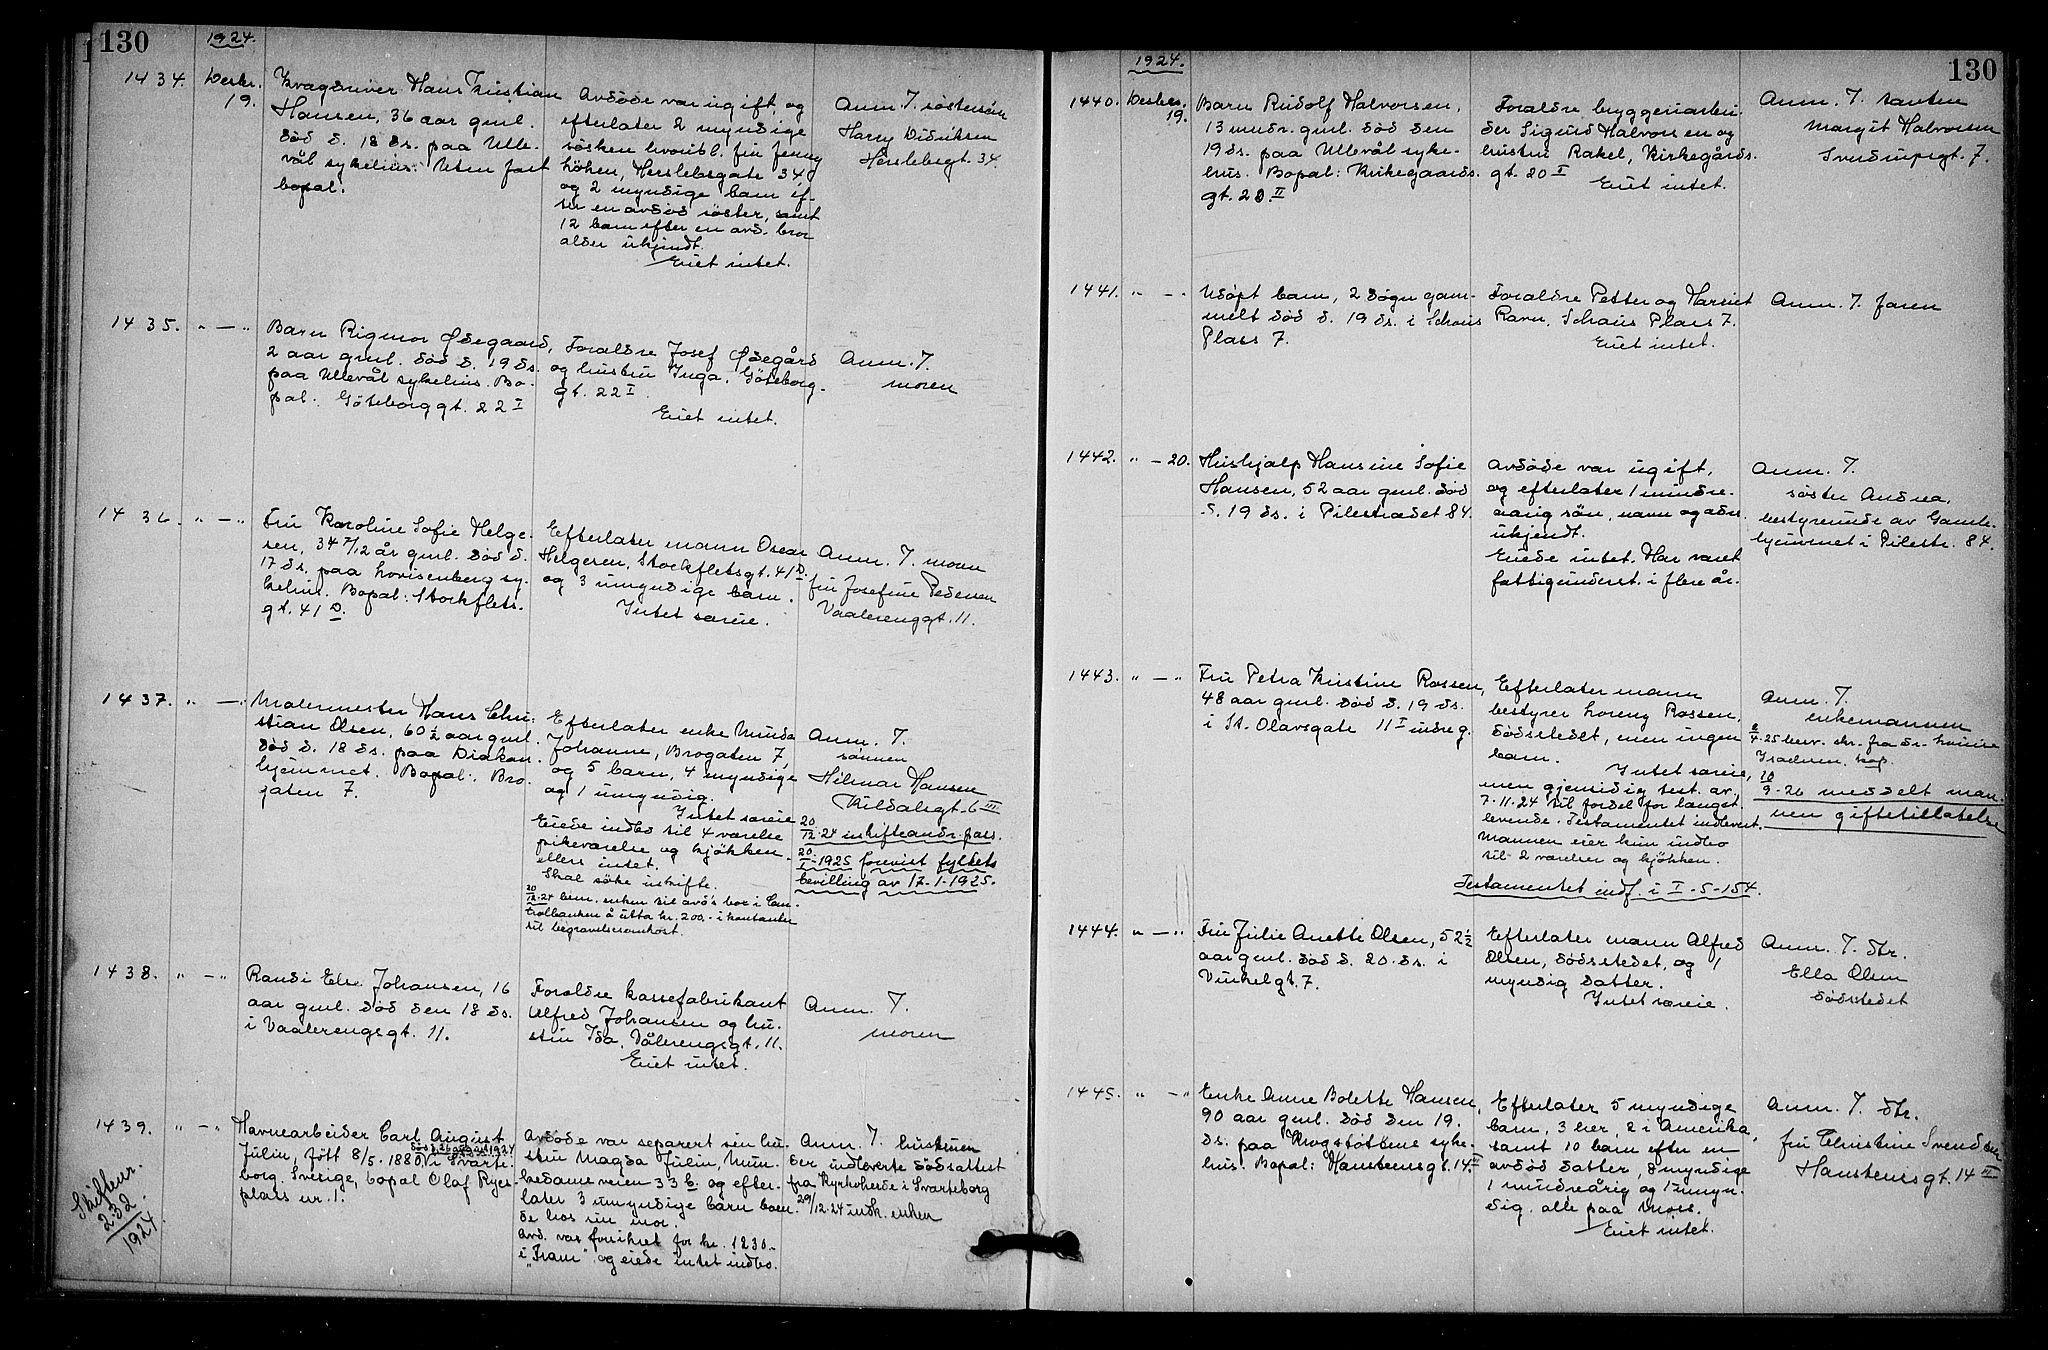 130
1924.
1434.
Desbr.
19.
Hans Kristian
Hansen, 36 aar gml.
död d. 18 ds. paa Ulle-
vål sykehus. Uten fast
bopal.
Avdöde var ugift, og
efterlater 2 myndige
sösken hvoribl. fru Jenny
Herslebsgate 34
og 2 myndige barn ef-
ter en avdöd söster, samt
12 barn efter en avd. bror
alder ukjendt.
Eiet intet.
Anm. T. söstersön
Harry Didriksen
Herslebsgt. 34
1435. " — "
Barn Rigmor Ødegaard,
2 aar gml. död d. 19 ds.
paa Ullevål sykehus. Bo-
pal: Göteborggt. 22 I
Foraldre Josef Ødegård
og hustru Inga, Göteborg-
gt. 22 I.
Eiet intet.
Anm. T.
moren
1436. " — "
Fru Karoline Sofie Helge-
sen, 34 7/12 år gml. död d.
17 ds. paa Lovisenberg sy-
kehus. Bopal: Stockflets-
gt. 41 D.
Efterlater mann Oscar
Helgesen, Stockfletsgt. 41 D
og 3 umyndige barn.
Intet særeie.
Anm. T. moren
fru Josefine Pedersen
Vaalerenggt. 11.
1437. " — "
Malermester Hans Chri-
stian Olsen, 60 1/2 aar gml.
död d. 18 ds. paa Diakon-
hjemmet. Bopal: Bro-
gaten 7.
Efterlater enke Minda
Johanne, Brogaten 7,
og 5 barn, 4 myndige
og 1 umyndig.
Intet særeie
Eiede indbo til 4 værelser
pikeværelse og kjökken
ellers intet.
Skal söke uskifte.
20/12-24 bem. enken til avd's bo i Cen-
tralbanken å utta kr. 200.- i kontanter
til begravelsesomkost.
Anm. T.
sönnen
Hilmar Hansen
Kildalsgt. 6 III
20/12-24 uskifteandr. pass.
20/1-1925 forevist fylkets
bevilling av 17-1-1925.
1438. " — "
Randi Else Johansen, 16
aar gml. död den 18 ds.
i Vaalerengsgt. 11.
Foraldre kassefabrikant
Alfred Johansen og hu-
stru Ida, Vålerengsgt. 11.
Eiet intet.
Anm. T.
moren
1439. " — "
Skiftenr.
232
1924.
Havnearbeider Carl August
Julin, fött 8/5. 1880 i Svarte-
borg, Sverige, bopal Olaf Ryes-
plass nr. 1.
Avdöde var separert sin hu-
stru Magda Julin, Mun-
kedamsveien 33 b. og efter-
later 3 umyndige barn boen-
de hos sin mor.
Avd. var forsikret for kr. 1230.-
i "Fram" og eiede intet indbo.
Anm. T. hustruen
der indleverte dödsattest
fra Kyrkoherde i Svarteborg
29/12-24 indk. enken
130
1924.
1440.
Desbr.
19.
Barn Rudolf Halvorsen,
13 mndr. gml. död den
19 ds. paa Ullevål syke-
hus. Bopal: Kirkegaards-
gt. 20. II
Foraldre bryggeriarbei-
der Sigurd Halvorsen og
hustru Rakel, Kirkegårds-
gt. 20 I
Eiet intet.
Anm. T. tanten
Margit Halvorsen
Sverdrupsgt. 7.
1441. " — "
Udöpt barn, 2 dögn gam-
melt död d. 19 ds. i Schous
Plass 7.
Foraldre Petter og Harriet
Ravn, Schous Plass 7.
Eiet intet.
Anm. T. faren
1442. " — 20.
Hushjalp Hansine Sofie
Hansen, 52 aar gml. död
d. 19 ds. i Pilestrædet 84.
Avdöde var ugift,
og efterlater 1 mindre-
aarig sön, navn og adr.
ukjendt.
Eiede intet. Har været
fattigunderst. i flere år.
Anm. T.
söster Andrea,
bestyrerinde av Gamle-
hjemmet i Pilestr. 84.
1443. " — "
Fru Petra Kristine Rossen,
48 aar gml. död d. 19 ds.
i St. Olavsgate 11 I indreg.
Efterlater mann
bestyrer Lorenz Rossen,
dödsstedet, men ingen
barn.
Intet særeie,
men gjensidig test. av
7-11-24 til fordel for længst-
levende. Testamentet indlevert.
Mannen eier kun indbo
til 2 værelser og kjökken.
Testamentet indf. i I-5-154.
Anm. T.
enkemannen
skr. fra dr.
10/9-26 meddelt man-
nen giftetillatelse
1444. " — "
Fru Julie Anette Olsen, 52 1/2
aar gml. död d. 20. ds. i
Vinkelgt. 7.
Efterlater mann Alfred
Olsen, dödsstedet, og 1
myndig datter.
Intet særeie.
Anm. T. dtr.
Ella Olsen
dödsstedet
1445. " — "
Enke Anne Bolette Hansen,
90 aar gml. död den 19.
ds. paa Krogstöttens syke-
hus. Bopal: Hansteensgt. 14 II
Efterlater 5 myndige
barn, 3 her, 2 i Amerika,
samt 10 barn efter en
avdöd datter, 8 myndige
1 mindreårig og 1 umyn-
dig, alle paa Moss.
Eiet intet.
Anm. T. dtr.
fru Christine Svendsen
Hansteensgt. 14 III